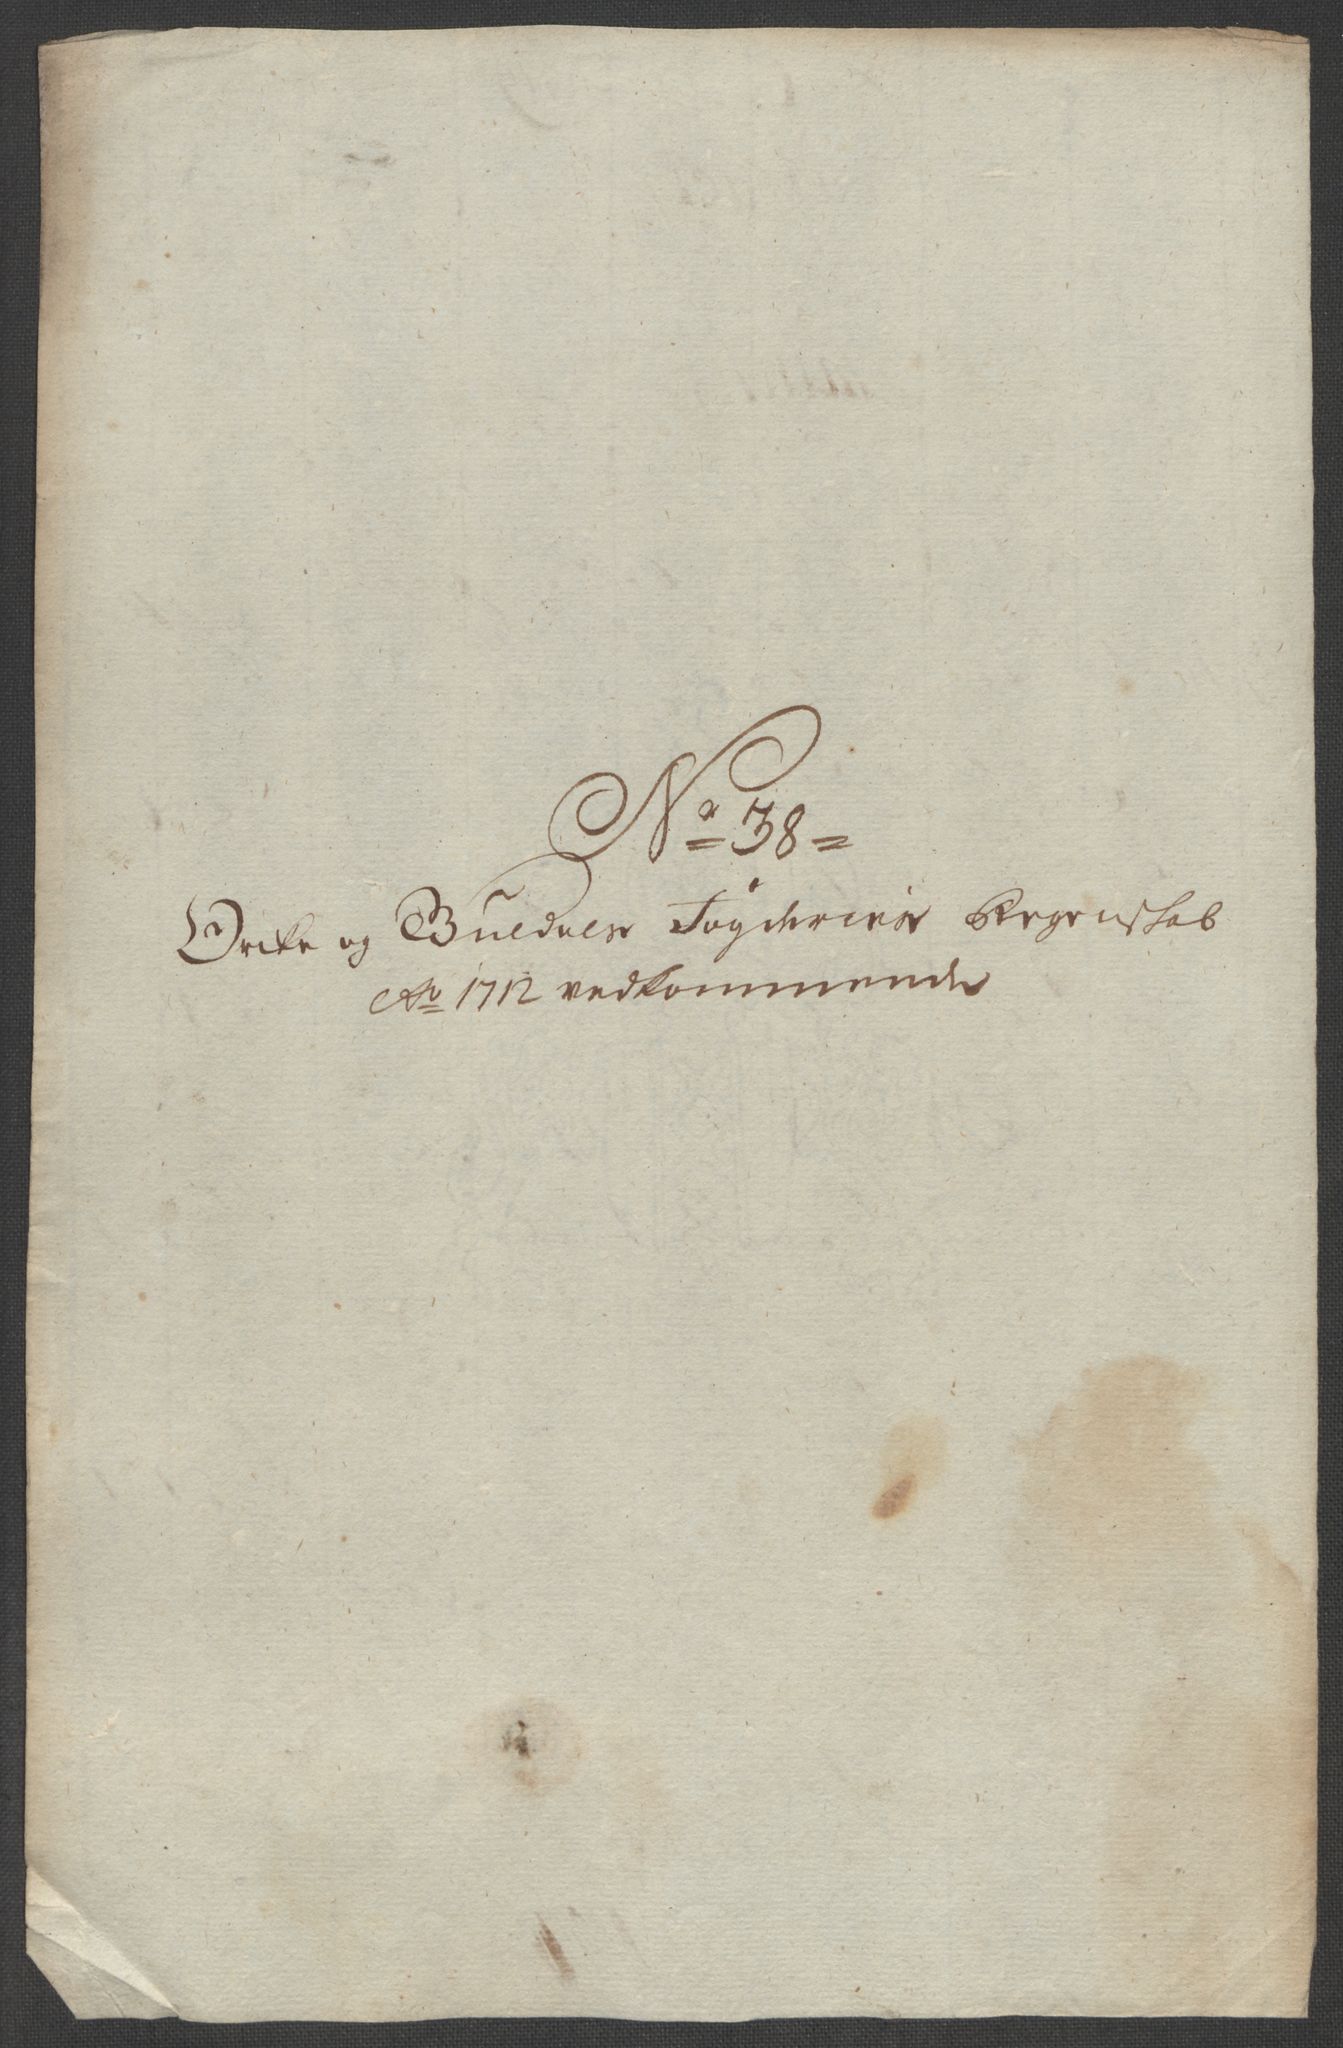 No 38
Örcke og Guldals Fogderies Regenskab
Ao 1712 vedkommende